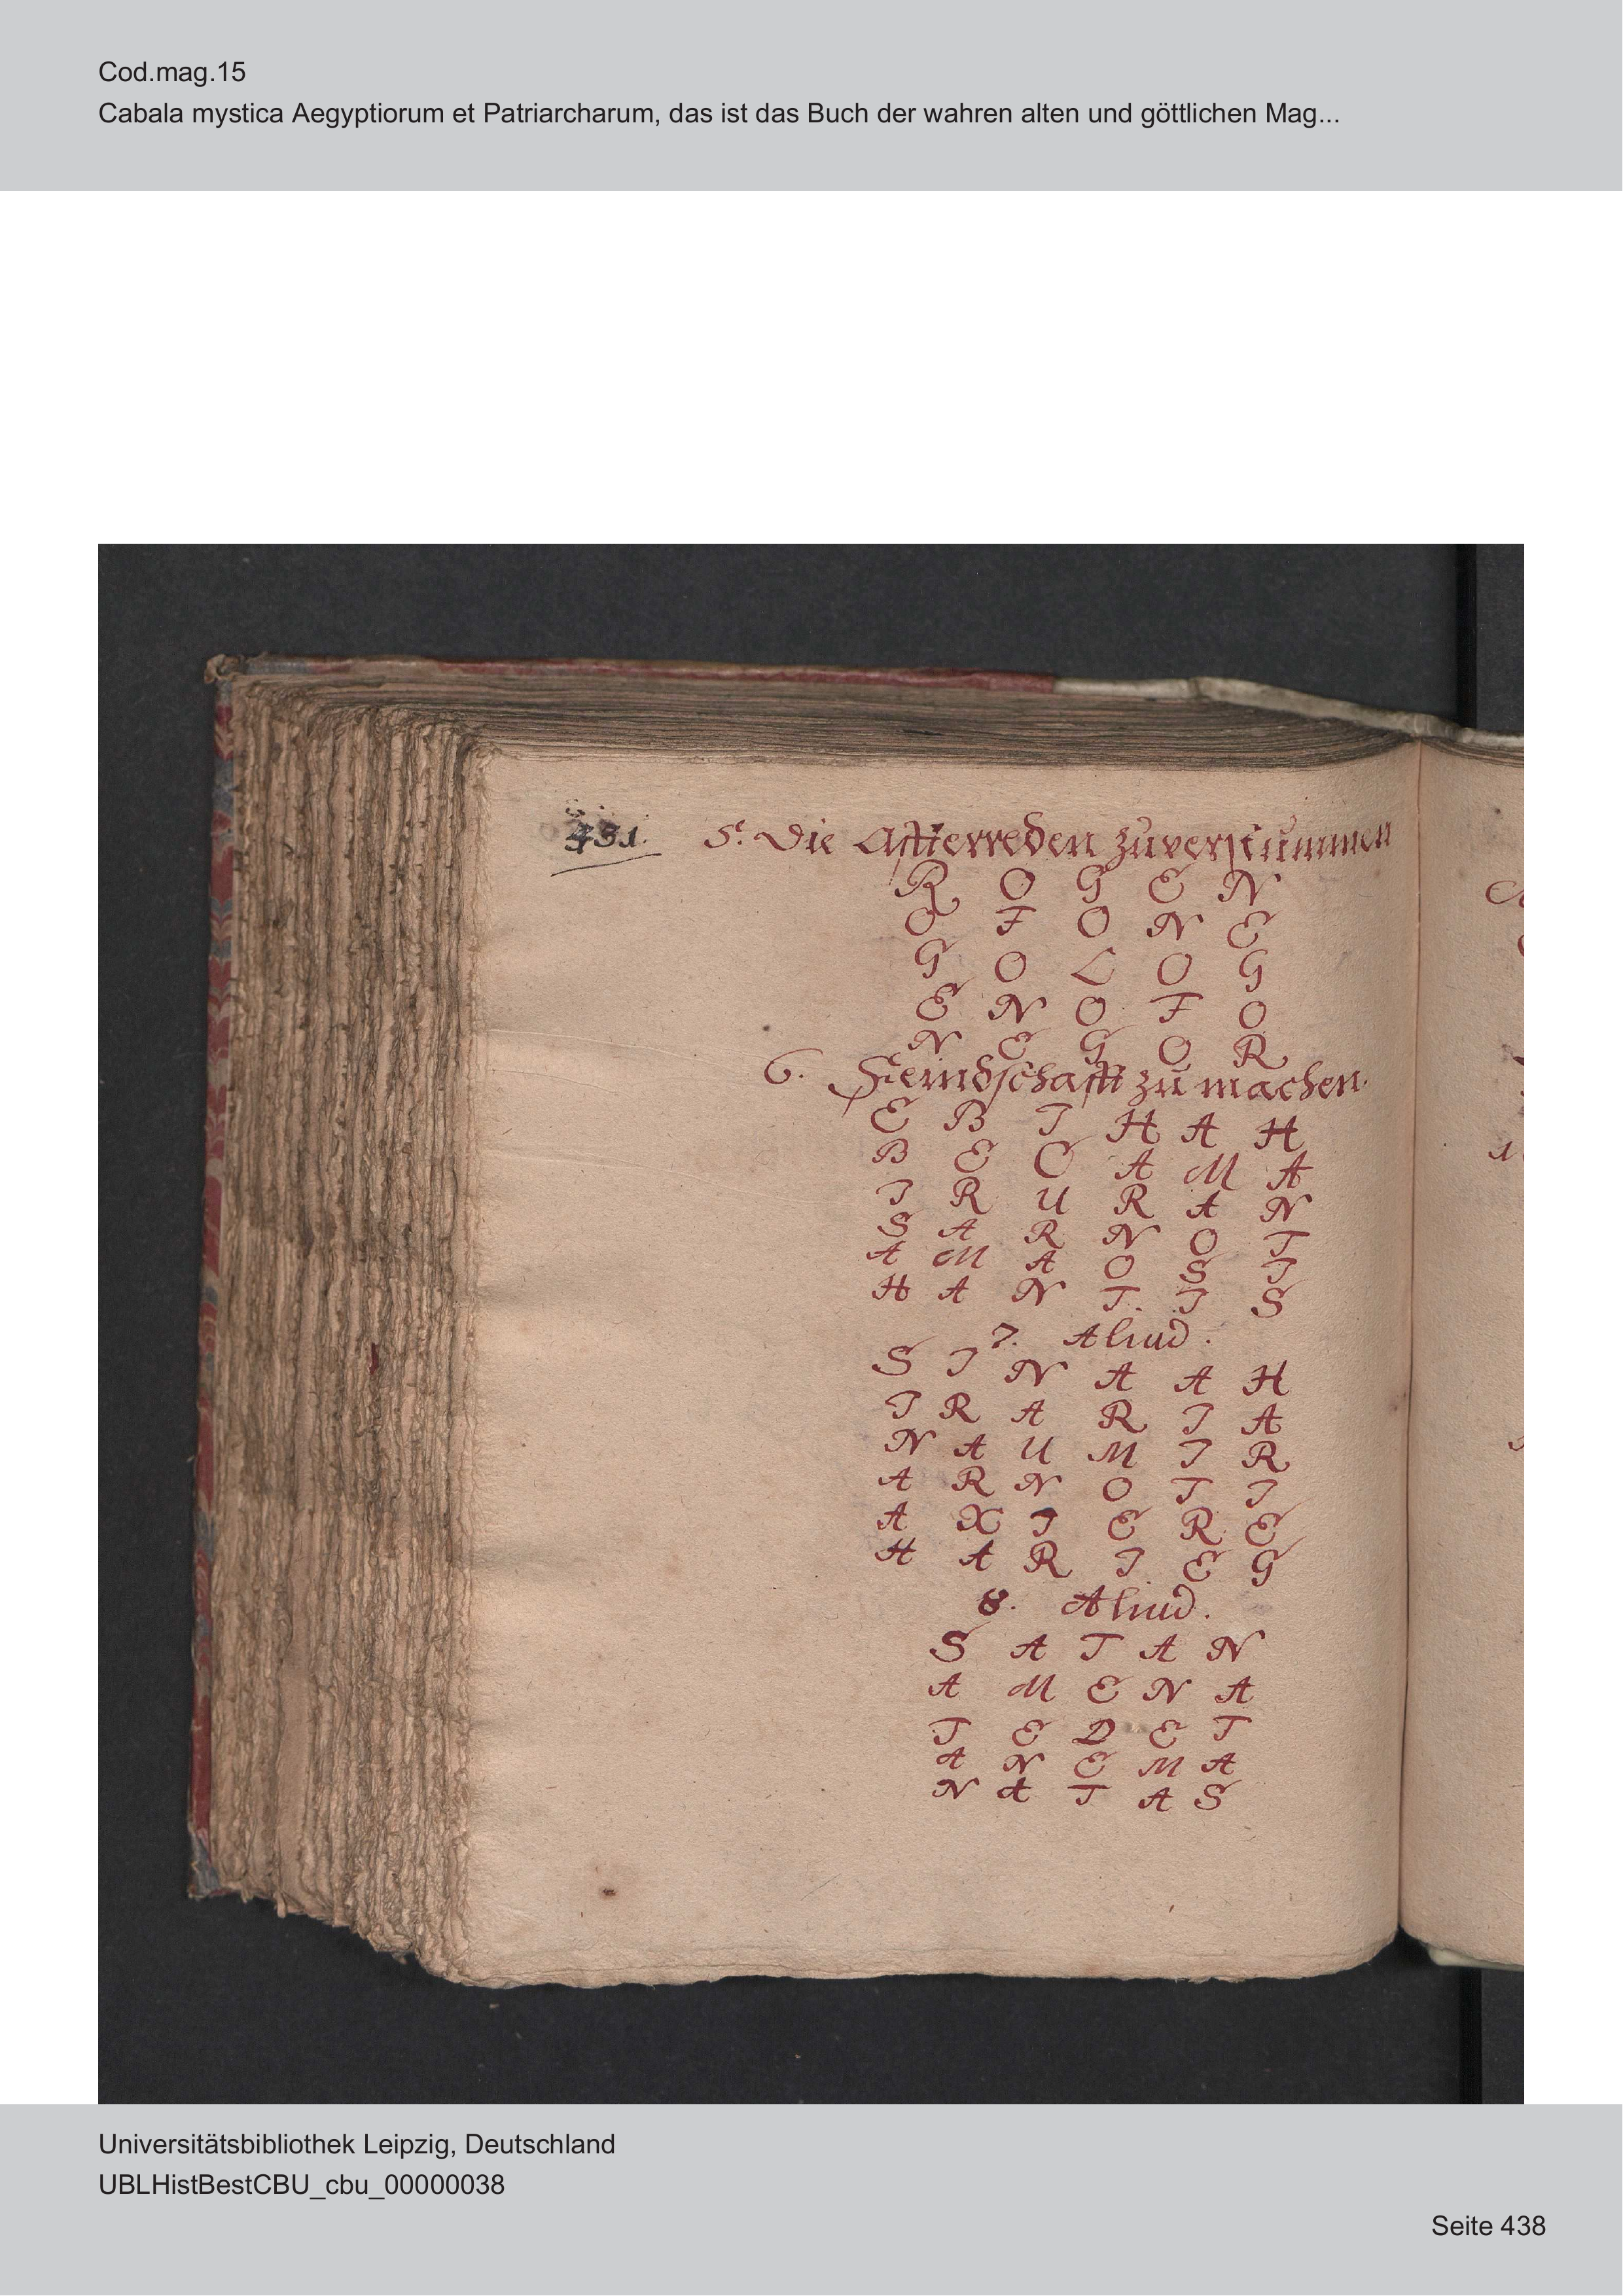 Cod.mag.15
Cabala mystica Aegyptiorum et Patriarcharum, das ist das Buch der wahren alten und göttlichen Mag...
431. 5. Die Affterreden zuverstummen
R O G E N
O F O N E
G O L O G
E N O F O
N E G O R
6. Feindschafft zu machen.
E B I H A H
B E O A M A
I R U R A N
S A R N O T
A M A O S I
H A N T. I S
7. Aliud.
S I N A A H
I R A R I A
N A U M I R
A R N O T I
A X I E R E
H A R I E G
8. Aliud.
S A T A N
A M E N A
T E D E T
A N E M A
N A T A S
Universitätsbibliothek Leipzig, Deutschland
UBLHistBestCBU_cbu_00000038
Seite 438